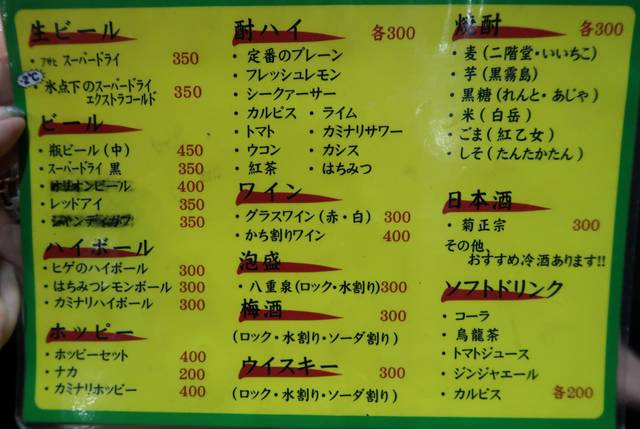 生ビール
・ｱｻﾋ スーパードライ 350
-2℃
・氷点下のスーパードライ
エクストラコールド 350
ビール
・瓶ビール(中) 450
・スーパードライ 黒 350
・オリオンビール 400
・レッドアイ 350
・シャンディガフ 350
ハイボール
・ヒゲのハイボール 300
・はちみつレモンボール 300
・カミナリハイボール 300
ホッピー
・ホッピーセット 400
・ナカ 200
・カミナリホッピー 400
酎ハイ 各300
・定番のプレーン
・フレッシュレモン
・シークァーサー
・カルピス ・ライム
・トマト ・カミナリサワー
・ウコン ・カシス
・紅茶 ・はちみつ
ワイン
・グラスワイン(赤・白) 300
・かち割りワイン 400
泡盛
・八重泉(ロック・水割り)300
梅酒 300
(ロック・水割り・ソーダ割り)
ウイスキー 300
(ロック・水割り・ソーダ割り)
焼酎 各300
・麦(二階堂・いいちこ)
・芋(黒霧島)
・黒糖(れんと・あじゃ)
・米(白岳)
・ごま(紅乙女)
・しそ(たんたかたん)
日本酒
・菊正宗 300
その他、
おすすめ冷酒あります!!
ソフトドリンク
・コーラ
・烏龍茶
・トマトジュース
・ジンジャエール
・カルピス 各200